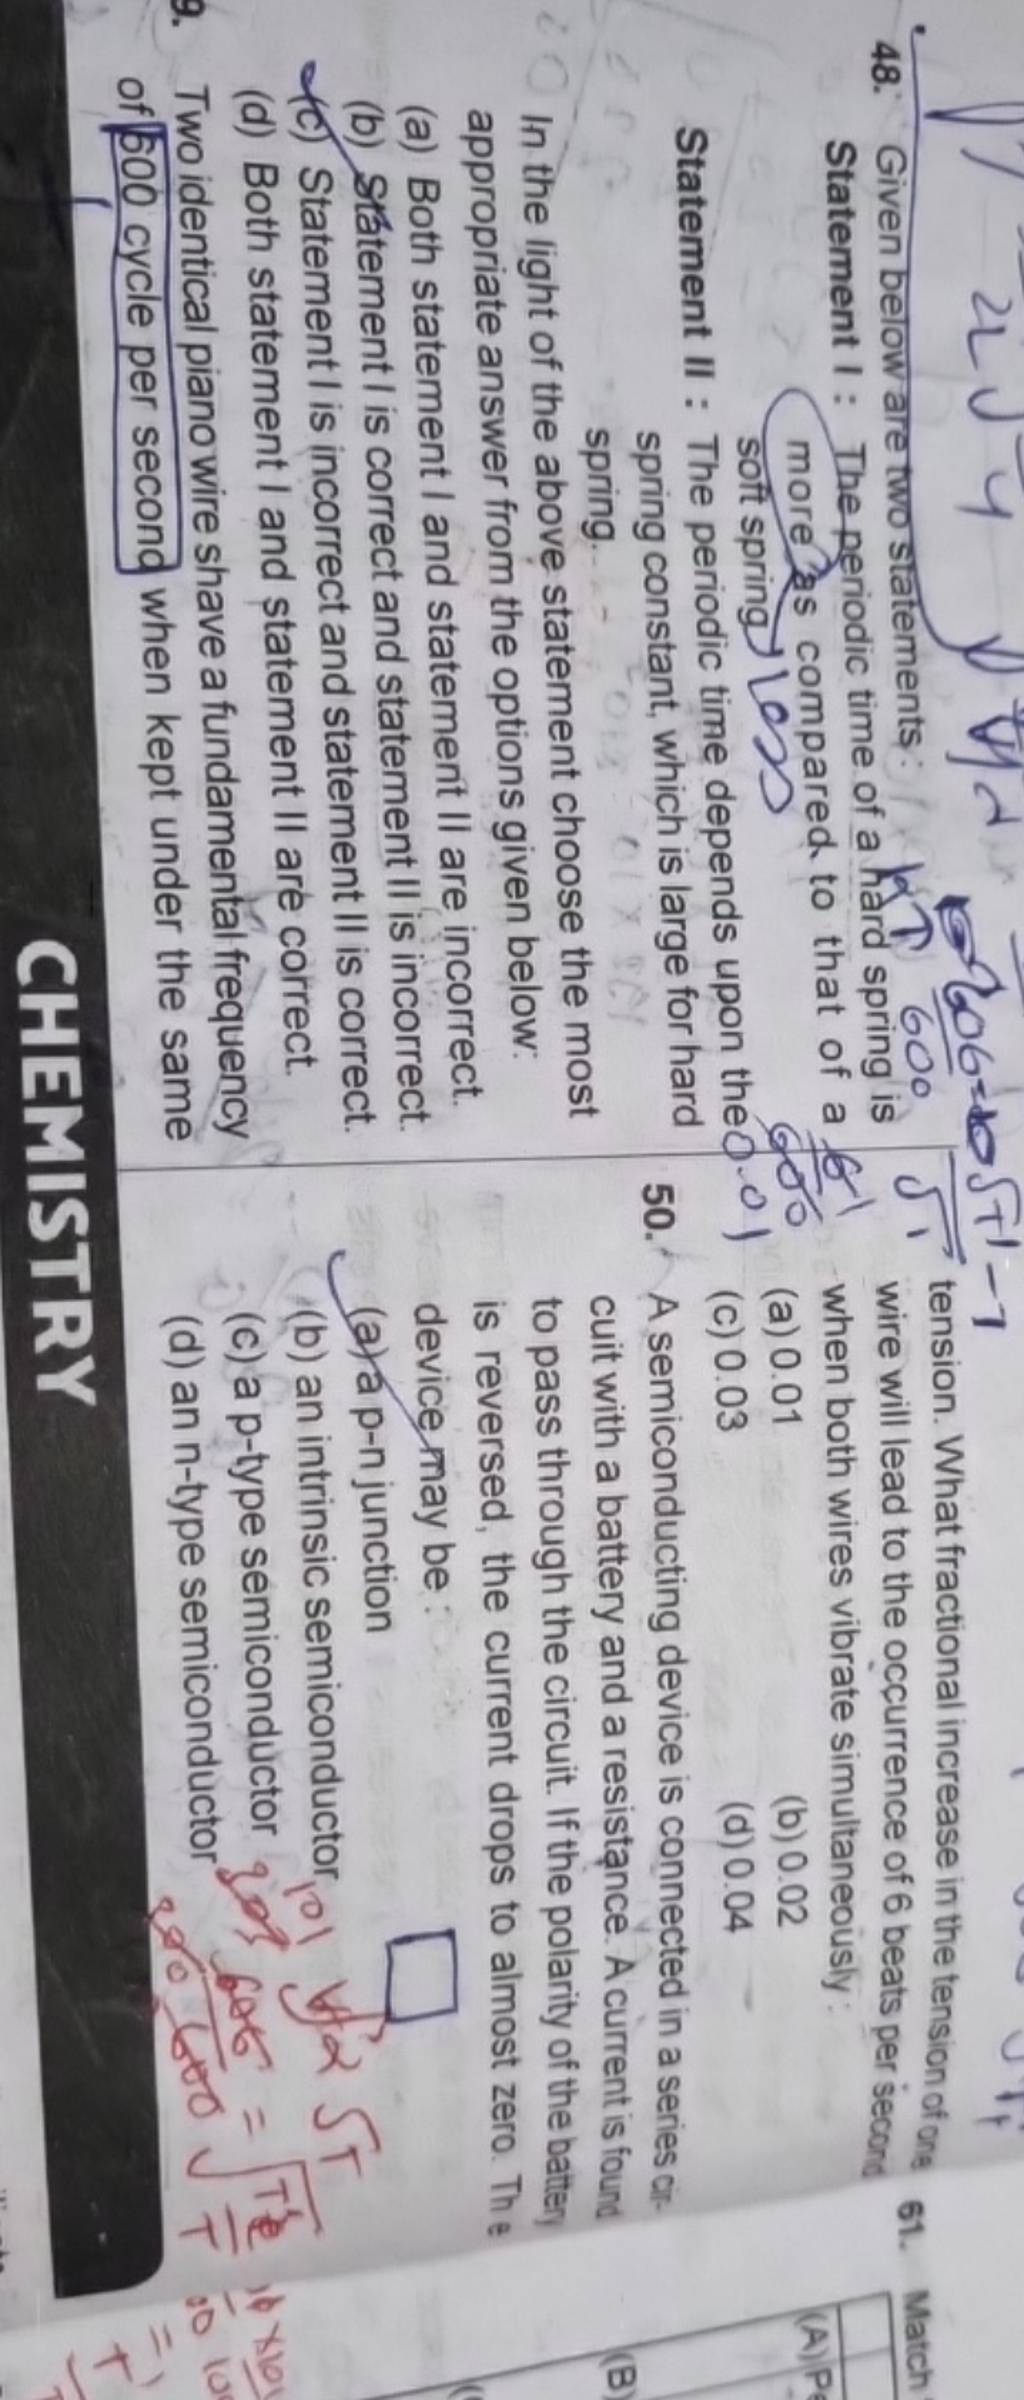 48. Given below are two statements :
Statement I : The periodic time of a hard spring is
more as compared to that of a
soft spring
less
Statement II : The periodic time depends upon the
spring constant, which is large for hard
spring.
In the light of the above statement choose the most
appropriate answer from the options given below:
(a) Both statement I and statement II are incorrect.
(b) Statement I is correct and statement II is incorrect.
(c) Statement I is incorrect and statement II is correct.
(d) Both statement I and statement II are correct.
9. Two identical piano wire shave a fundamental frequency
of 600 cycle per second when kept under the same
tension. What fractional increase in the tension of one
wire will lead to the occurrence of 6 beats per second
when both wires vibrate simultaneously :
(a) 0.01 (b) 0.02
(c) 0.03 (d) 0.04
50. A semiconducting device is connected in a series cir-
cuit with a battery and a resistance. A current is found
to pass through the circuit. If the polarity of the battery
is reversed, the current drops to almost zero. The
device may be :
(a) a p-n junction
(b) an intrinsic semiconductor
(c) a p-type semiconductor
(d) an n-type semiconductor
600
0.01
101
√T
CHEMISTRY
61. Match
(A)
(B)